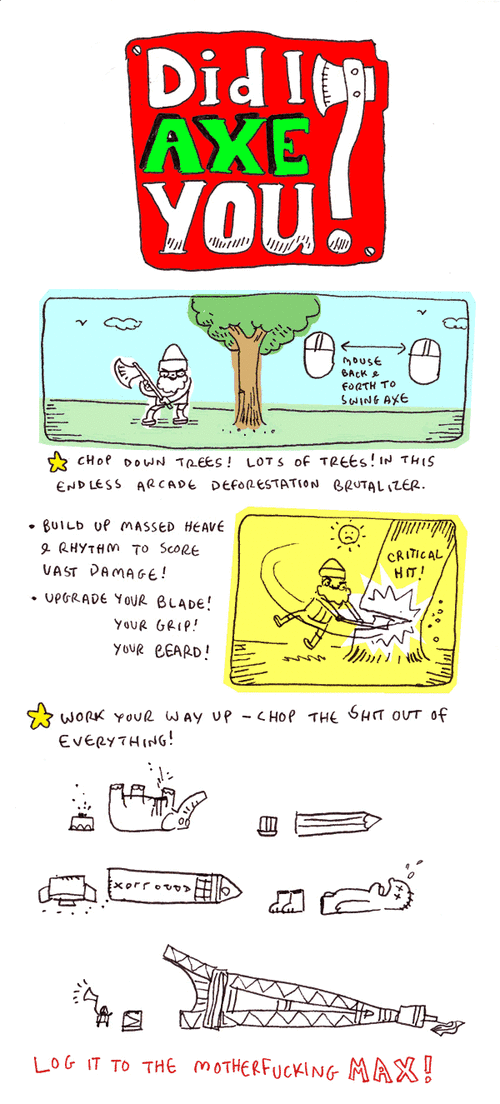 Did I
AXE
YOU?
MOUSE
BACK &
FORTH TO
SWING AXE
CHOP DOWN TREES! LOTS OF TREES! IN THIS
ENDLESS ARCADE DEFORESTATION BRUTALIZER.
• BUILD UP MASSED HEAVE
& RHYTHM TO SCORE
VAST DAMAGE!
• UPGRADE YOUR BLADE!
YOUR GRIP!
YOUR BEARD!
CRITICAL
HIT!
WORK YOUR WAY UP – CHOP THE SHIT OUT OF
EVERYTHING!
LOG IT TO THE MOTHERFUCKING MAX!